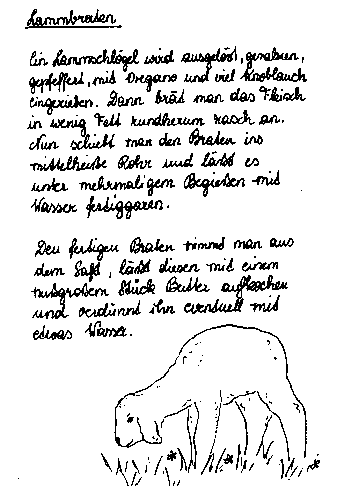 Lammbraten
Ein Lammschlögel wird ausgelöst, gesalzen,
gepfeffert, mit Oregano und viel Knoblauch
eingerieben. Dann brät man das Fleisch
in wenig Fett rundherum rasch an.
Nun schiebt man den Braten ins
mittelheiße Rohr und läßt es
unter mehrmaligem Begießen mit
Wasser fertiggaren.
Den fertigen Braten nimmt man aus
dem Saft, läßt diesen mit einem
nußgroßem Stück Butter aufkochen
und verdünnt ihn eventuell mit
etwas Wasser.